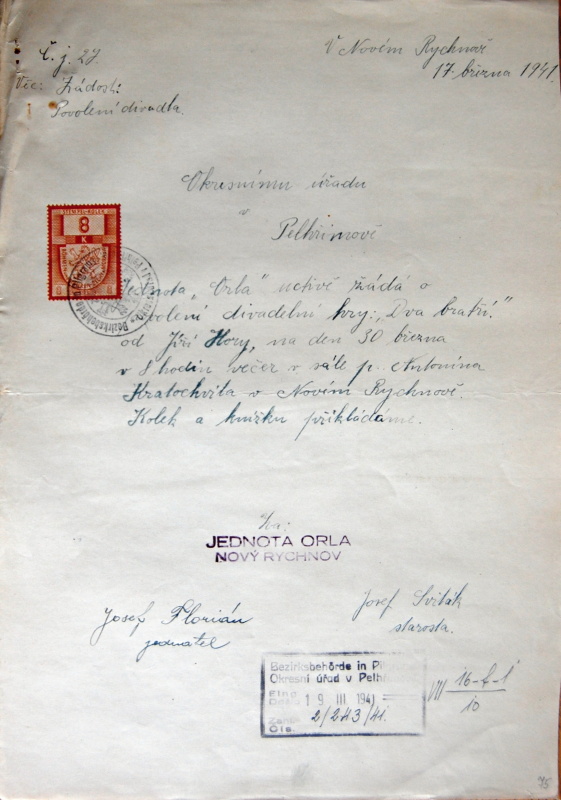 Č. j. 27.
V Novém Rychnově
17. března 1941.
Věc: Žádost:
Povolení divadla.
Okresnímu úřadu
v
Pelhřimově
STEMPEL-KOLEK
8
K
Jednota „Orla" uctivě žádá o
povolení divadelní hry: „Dva bratři."
od Jiří Hory, na den 30 března
v 8 hodin večer v sále p. Antonína
Kratochvíla v Novém Rychnově.
Kolek a knížku přikládáme.
Za:
JEDNOTA ORLA
NOVÝ RYCHNOV
Josef Florián
jednatel
Josef Sviták
starosta.
Bezirksbehörde in
Okresní úřad v
19 III 1941
2/243/41.
VII
10
75